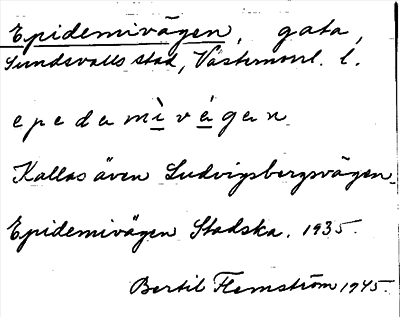 Epidemivägen, gata,
Sundsvalls stad, Västernorrl. l.
epedemìvágan
Kallas även Ludvigsbergsvägen.
Epidemivägen Stadska. 1935.
Bertil Flemström 1945.